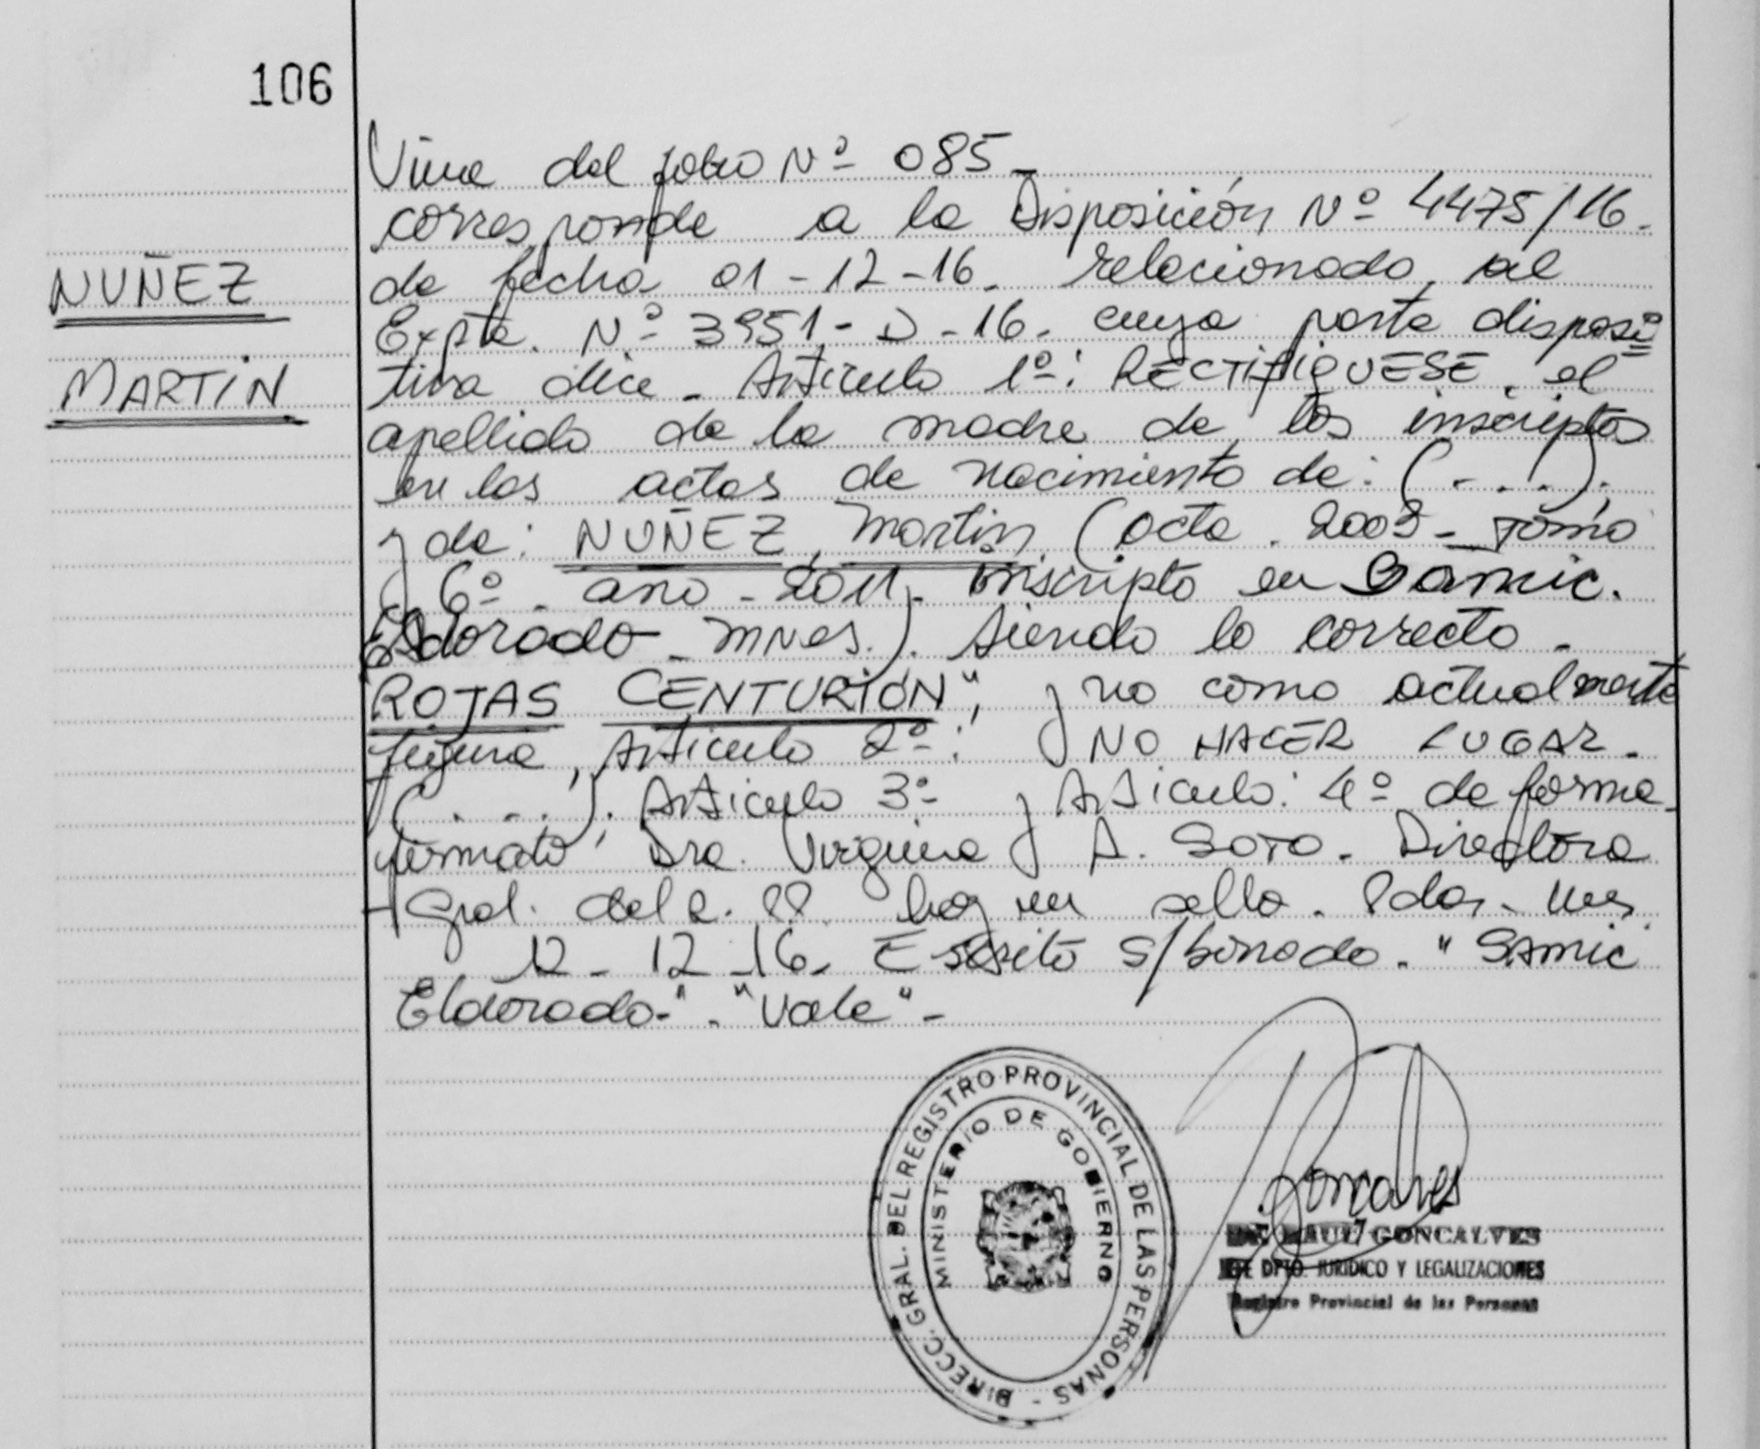 106
Viene del folio Nº 085-
corresponde a la Disposición Nº 4475/16.
de fecha 01-12-16. relacionado al
NUÑEZ
Expte. Nº 3951-D-16. cuya parte disposi
tiva dice - Articulo 1º: RECTIFIQUESE, el
MARTIN
apellido de la madre de los inscriptos
en las actas de nacimiento de: (....).
y de: NUÑEZ, Martin (acta. 2003- Tomo
6º - año - 2011. inscripto en Samic.
Eldorado - mnes.). siendo lo correcto -
ROJAS CENTURIÓN", y no como actualmente
figura, Articulo 2º: NO HACER LUGAR.
(....). Articulo 3º y Articulo: 4º de forma-
firmato, Dra. Virginia A. SOTO. Directora
Gral. del R. PP. hay un sello. Pdas. Mes
12-12-16. Escrito s/borrado. "Samic
Eldorado-". "Vale"-
DIRECC. GRAL. DEL REGISTRO PROVINCIAL DE LAS PERSONAS -
MINISTERIO DE GOBIERNO
Goncalves
RAUL GONCALVES
JEFE DPTO. JURIDICO Y LEGALIZACIONES
Registro Provincial de las Personas